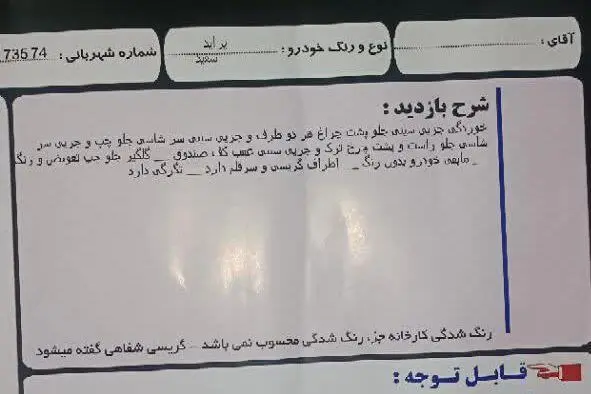 آقای :
نوع و رنگ خودرو : پراید سفید
شماره شهربانی : 73574
شرح بازدید :
خوردگی جزیی سینی جلو پشت چراغ هر دو طرف و جزیی سینی سر شاسی جلو چپ و جزیی سر
شاسی جلو راست و پشت چرخ ترک و جزیی سینی عقب کف صندوق _ گلگیر جلو چپ تعویض و رنگ
_ مابقی خودرو بدون رنگ _ اطراف گریسی و سرقلم دارد _ تگرگی دارد
رنگ شدگی کارخانه جزء رنگ شدگی محسوب نمی باشد - گریسی شفاهی گفته میشود
قابل توجه :